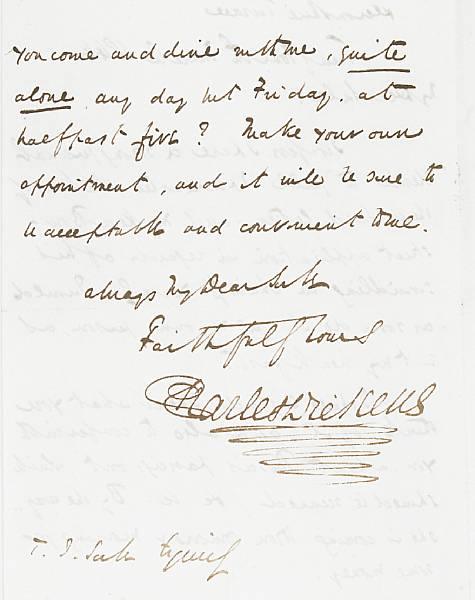 you come and dine with me, quite
alone any day but Friday. at
half past five? Make your own
appointment, and it will be sure to
be acceptable and convenient to me.
always My Dear
Faithfully Yours
Charles Dickens
T. J.